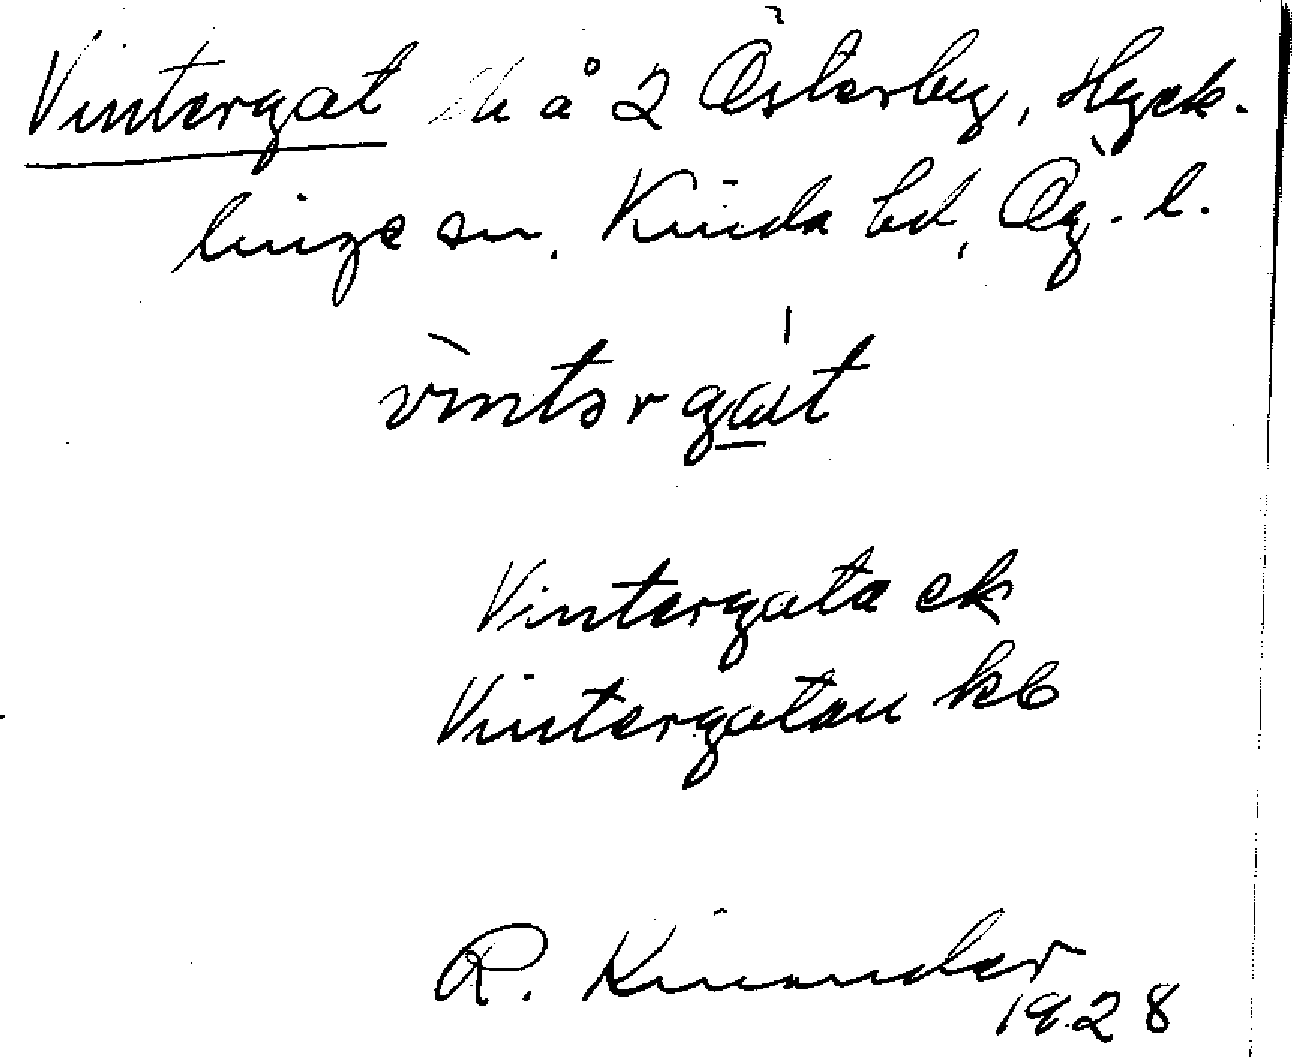 Vintergat å 2 Österby, Hyck-
linge sn. Kinda hd, Ög. l.
vìntərgát
Vintergata ek
Vintergatan kb
R. Kinander
1928